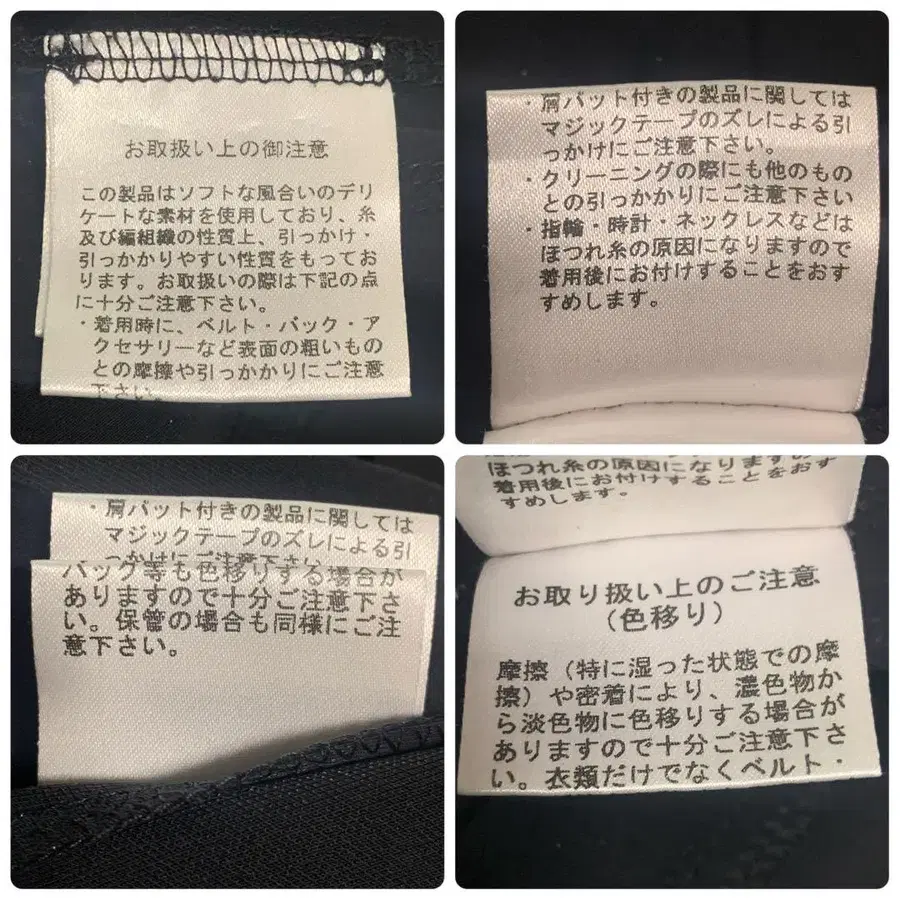 お取扱い上の御注意
この製品はソフトな風合いのデリ
ケートな素材を使用しており、糸
及び編組織の性質上、引っかけ・
引っかかりやすい性質をもってお
ります。お取扱いの際は下記の点
に十分ご注意下さい。
・着用時に、ベルト・バック・ア
クセサリーなど表面の粗いもの
との摩擦や引っかかりにご注意
下さい。
・肩パット付きの製品に関しては
マジックテープのズレによる引
っかけにご注意下さい。
・クリーニングの際にも他のもの
との引っかかりにご注意下さい
・指輪・時計・ネックレスなどは
ほつれ糸の原因になりますので
着用後にお付けすることをおす
すめします。
・肩パット付きの製品に関しては
マジックテープのズレによる引
っかけにご注意下さい。
バッグ等も色移りする場合が
ありますので十分ご注意下さ
い。保管の場合も同様にご注
意下さい。
ほつれ糸の原因になりますの
着用後にお付けすることをおす
すめします。
お取り扱い上のご注意
（色移り）
摩擦（特に湿った状態での摩
擦）や密着により、濃色物か
ら淡色物に色移りする場合が
ありますので十分ご注意下さ
い。衣類だけでなくベルト・